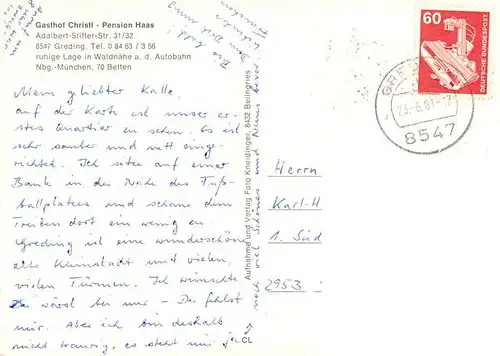 Gasthof Christl - Pension Haas
Adalbert-Stifter-Str. 31/32
8547 Greding, Tel. 0 84 63 / 3 56
ruhige Lage in Waldnähe a. d. Autobahn
Nbg.-München, 70 Betten
Mein geliebter Kalle,
auf der Karte ist unser er-
stes Quartier zu sehen. Es ist
sehr sauber und nett einge-
richtet. Ich sitze auf einer
Bank in der Nähe des Fuß-
ballplatzes und schaue dem
Treiben dort ein wenig zu
Greding ist eine wunderschöne
alte Kleinstadt mit vielen,
vielen Türmen. Ich wünschte
Du wärst bei mir - Du fehlst
mir. Aber ich bin deshalb
nicht traurig, es steht mir ja
noch viel Schönes und Neues bevor.
Bis bald
Aufnahme und Verlag Foto Kneidinger, 8432 Beilngries
CL
60
DEUTSCHE BUNDESPOST
GRED
23.-6.81-7
8547
Herrn
Karl-H
1. Süd
2953